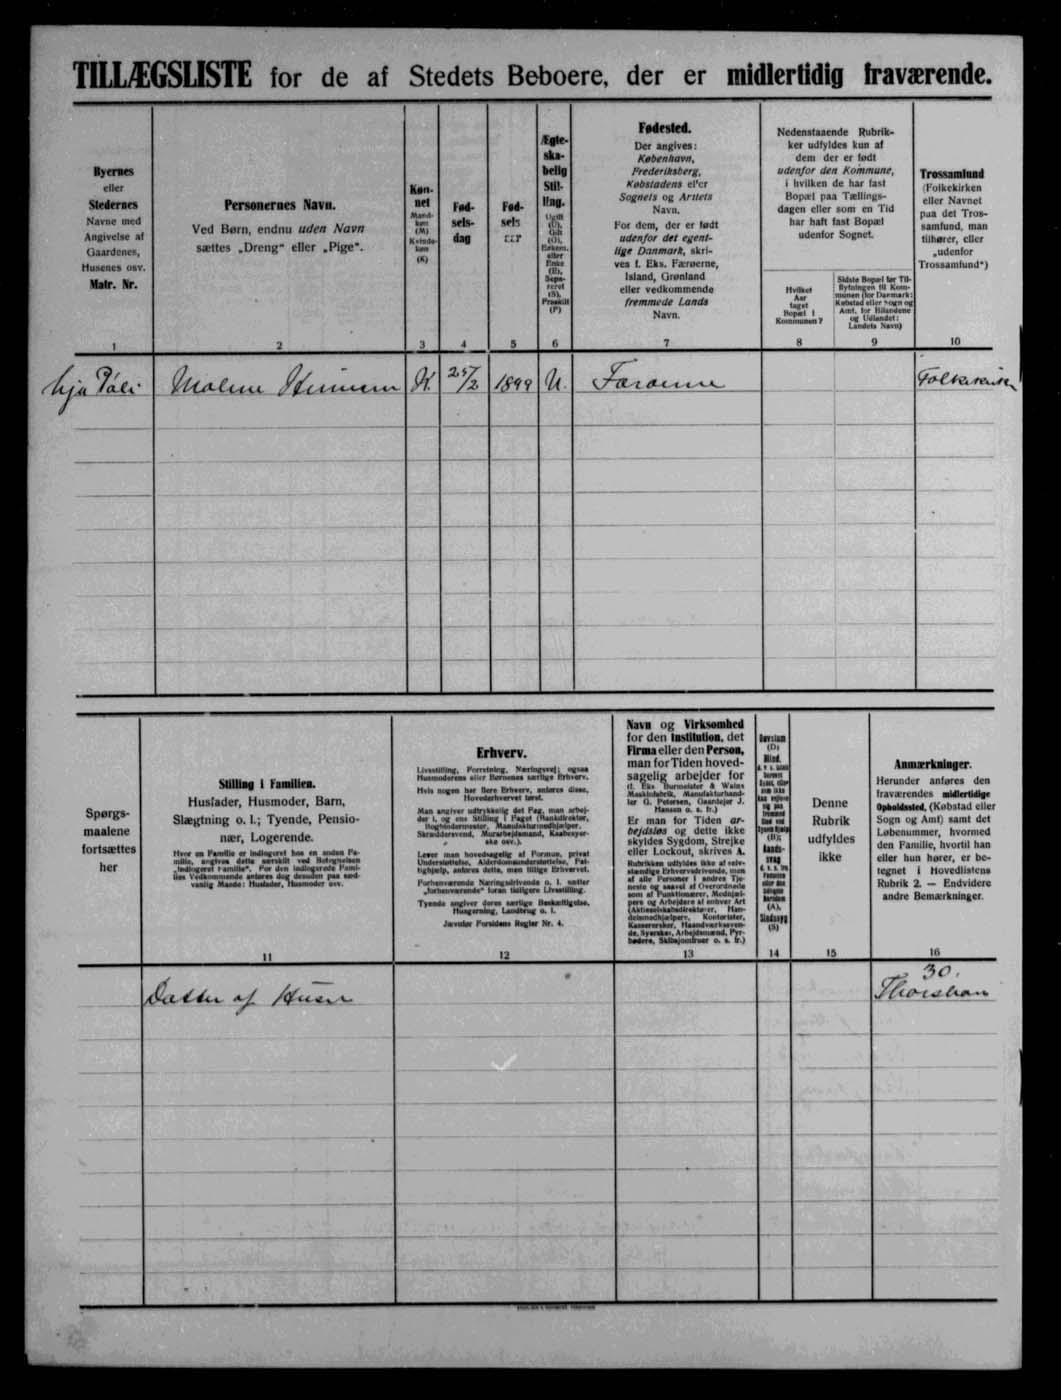 TILLÆGSLISTE for de af Stedets Beboere, der er midlertidig fraværende.
Byernes
eller
Stedernes
Navne med
Angivelse af
Gaardenes,
Husenes osv.
Matr. Nr.
1
Personernes Navn.
Ved Børn, endnu uden Navn
sættes „Dreng“ eller „Pige“.
2
Køn-
net
Mand-
køn
(M)
Kvinde-
køn
(K)
3
Fød-
sels-
dag
4
Fød-
sels
5
Ægte-
ska-
belig
Stil-
ling.
Ugift
(U),
Gift
(G),
Enkem.
eller
Enke
(E),
Sepa-
reret
(S),
Fraskilt
(F)
6
Fødested.
Der angives:
København,
Frederiksberg,
Købstadens el'er
Sognets og Amtets
Navn.
For dem, der er født
udenfor det egent-
lige Danmark, skri-
ves f. Eks. Færøerne,
Island, Grønland
eller vedkommende
fremmede Lands
Navn.
7
Nedenstaaende Rubrik-
ker udfyldes kun af
dem der er født
udenfor den Kommune,
i hvilken de har fast
Bopæl paa Tællings-
dagen eller som en Tid
har haft fast Bopæl
udenfor Sognet.
Hvilket
Aar
taget
Bopæl i
Kommunen?
8
Sidste Bopæl før Til-
flytningen til Kom-
munen (for Danmark:
Købstad eller Sogn og
Amt, for Bilandene
og Udlandet:
Landets Navn)
9
Trossamfund
(Folkekirken
eller Navnet
paa det Tros-
samfund, man
tilhører, eller
„udenfor
Trossamfund“)
10
hja Páli Malene K. 25/2 1899 U. Færøerne Folkekirken
Spørgs-
maalene
fortsættes
her
Stilling i Familien.
Husfader, Husmoder, Barn,
Slægtning o. l.; Tyende, Pensio-
nær, Logerende.
Hvor en Familie er indlogeret hos en anden Fa-
milie, angives dette særskilt ved Betegnelsen
„indlogeret Familie“. For den indlogerede Fami-
lies Vedkommende anføres dog desuden paa sæd-
vanlig Maade: Husfader, Husmoder osv.
11
Erhverv.
Livsstilling, Forretning, Næringsvej; ogsaa
Husmoderens eller Børnenes særlige Erhverv.
Hvis nogen har flere Erhverv, anføres disse,
Hovederhvervet først.
Man angiver udtrykkelig det Fag, man arbej-
der i, og ens Stilling i Faget (Bankdirektør,
Bogbindermester, Manufakturmedhjælper,
Skræddersvend, Murarbejdsmand, Kaabesyer-
ske osv.).
Lever man hovedsagelig af Formue, privat
Understøttelse, Alderdomsunderstøttelse, Fat-
tighjælp, anføres dette, men tillige Erhvervet.
Forhenværende Næringsdrivende o. l. sætter
„forhenværende“ foran tidligere Livsstilling.
Tyende angiver deres særlige Beskæftigelse,
Husgerning, Landbrug o. l.
Jævnfør Forsidens Regler Nr. 4.
12
Navn og Virksomhed
for den Institution, det
Firma eller den Person,
man for Tiden hoved-
sagelig arbejder for
(f. Eks Burmeister & Wains
Maskinfabrik, Manufakturhand-
ler G. Petersen, Gaardejer J.
Hansen o. s. fr.)
Er man for Tiden ar-
bejdsløs og dette ikke
skyldes Sygdom, Strejke
eller Lockout, skrives A.
Rubrikken udfyldes ikke af selv-
stændige Erhvervsdrivende, men
af alle Personer i andres Tje-
neste og saavel af Overordnede
som af Funktionærer, Medhjæl-
pere og Arbejdere af enhver Art
(Aktieselskabsdirektører, Han-
delsmedhjælpere, Kontorister,
Kassererske, Haandværkssven-
de, Syersker, Arbejdsmænd, Fyr-
bødere, Skibsjomfruer o. s. fr.)
13
Døvstum
(D)
Blind,
(B);
Aands-
svag
(A),
Sindssyg
(S)
14
Denne
Rubrik
udfyldes
ikke
15
Anmærkninger.
Herunder anføres den
fraværendes midlertidige
Opholdssted, (Købstad eller
Sogn og Amt) samt det
Løbenummer, hvormed
den Familie, hvortil han
eller hun hører, er be-
tegnet i Hovedlistens
Rubrik 2. — Endvidere
andre Bemærkninger.
16
30.
Datter af Huset Thorshavn